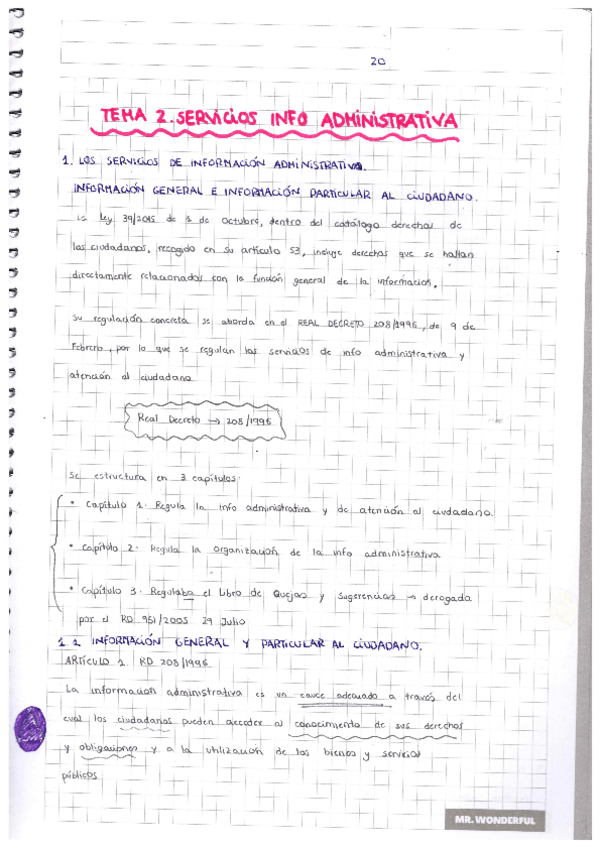 20
TEMA 2. SERVICIOS INFO ADMINISTRATIVA
1. LOS SERVICIOS DE INFORMACIÓN ADMINISTRATIVA.
INFORMACIÓN GENERAL E INFORMACIÓN PARTICULAR AL CIUDADANO.
la ley 39/2015 de 1 de octubre, dentro del catálogo derechos de
los ciudadanos, recogido en su artículo 53, incluye derechos que se hallan
directamente relacionados con la función general de la información.
Su regulación concreta se aborda en el REAL DECRETO 208/1996, de 9 de
Febrero, por lo que se regulan los servicios de info administrativa y
atención al ciudadano
Real Decreto → 208/1996
Se estructura en 3 capítulos:
• Capítulo 1. Regula la info administrativa y de atención al ciudadano.
• Capítulo 2. Regula la organización de la info administrativa
• Capítulo 3. Regulaba el Libro de Quejas y Sugerencias → derogada
por el RD 951/2005 29 Julio
1.1 INFORMACIÓN GENERAL Y PARTICULAR AL CIUDADANO.
ARTÍCULO 1 RD 208/1996
La información administrativa es un cauce adecuado a través del
cual los ciudadanos pueden acceder al conocimiento de sus derechos
y obligaciones y a la utilización de los bienes y servicios
públicos
MR. WONDERFUL